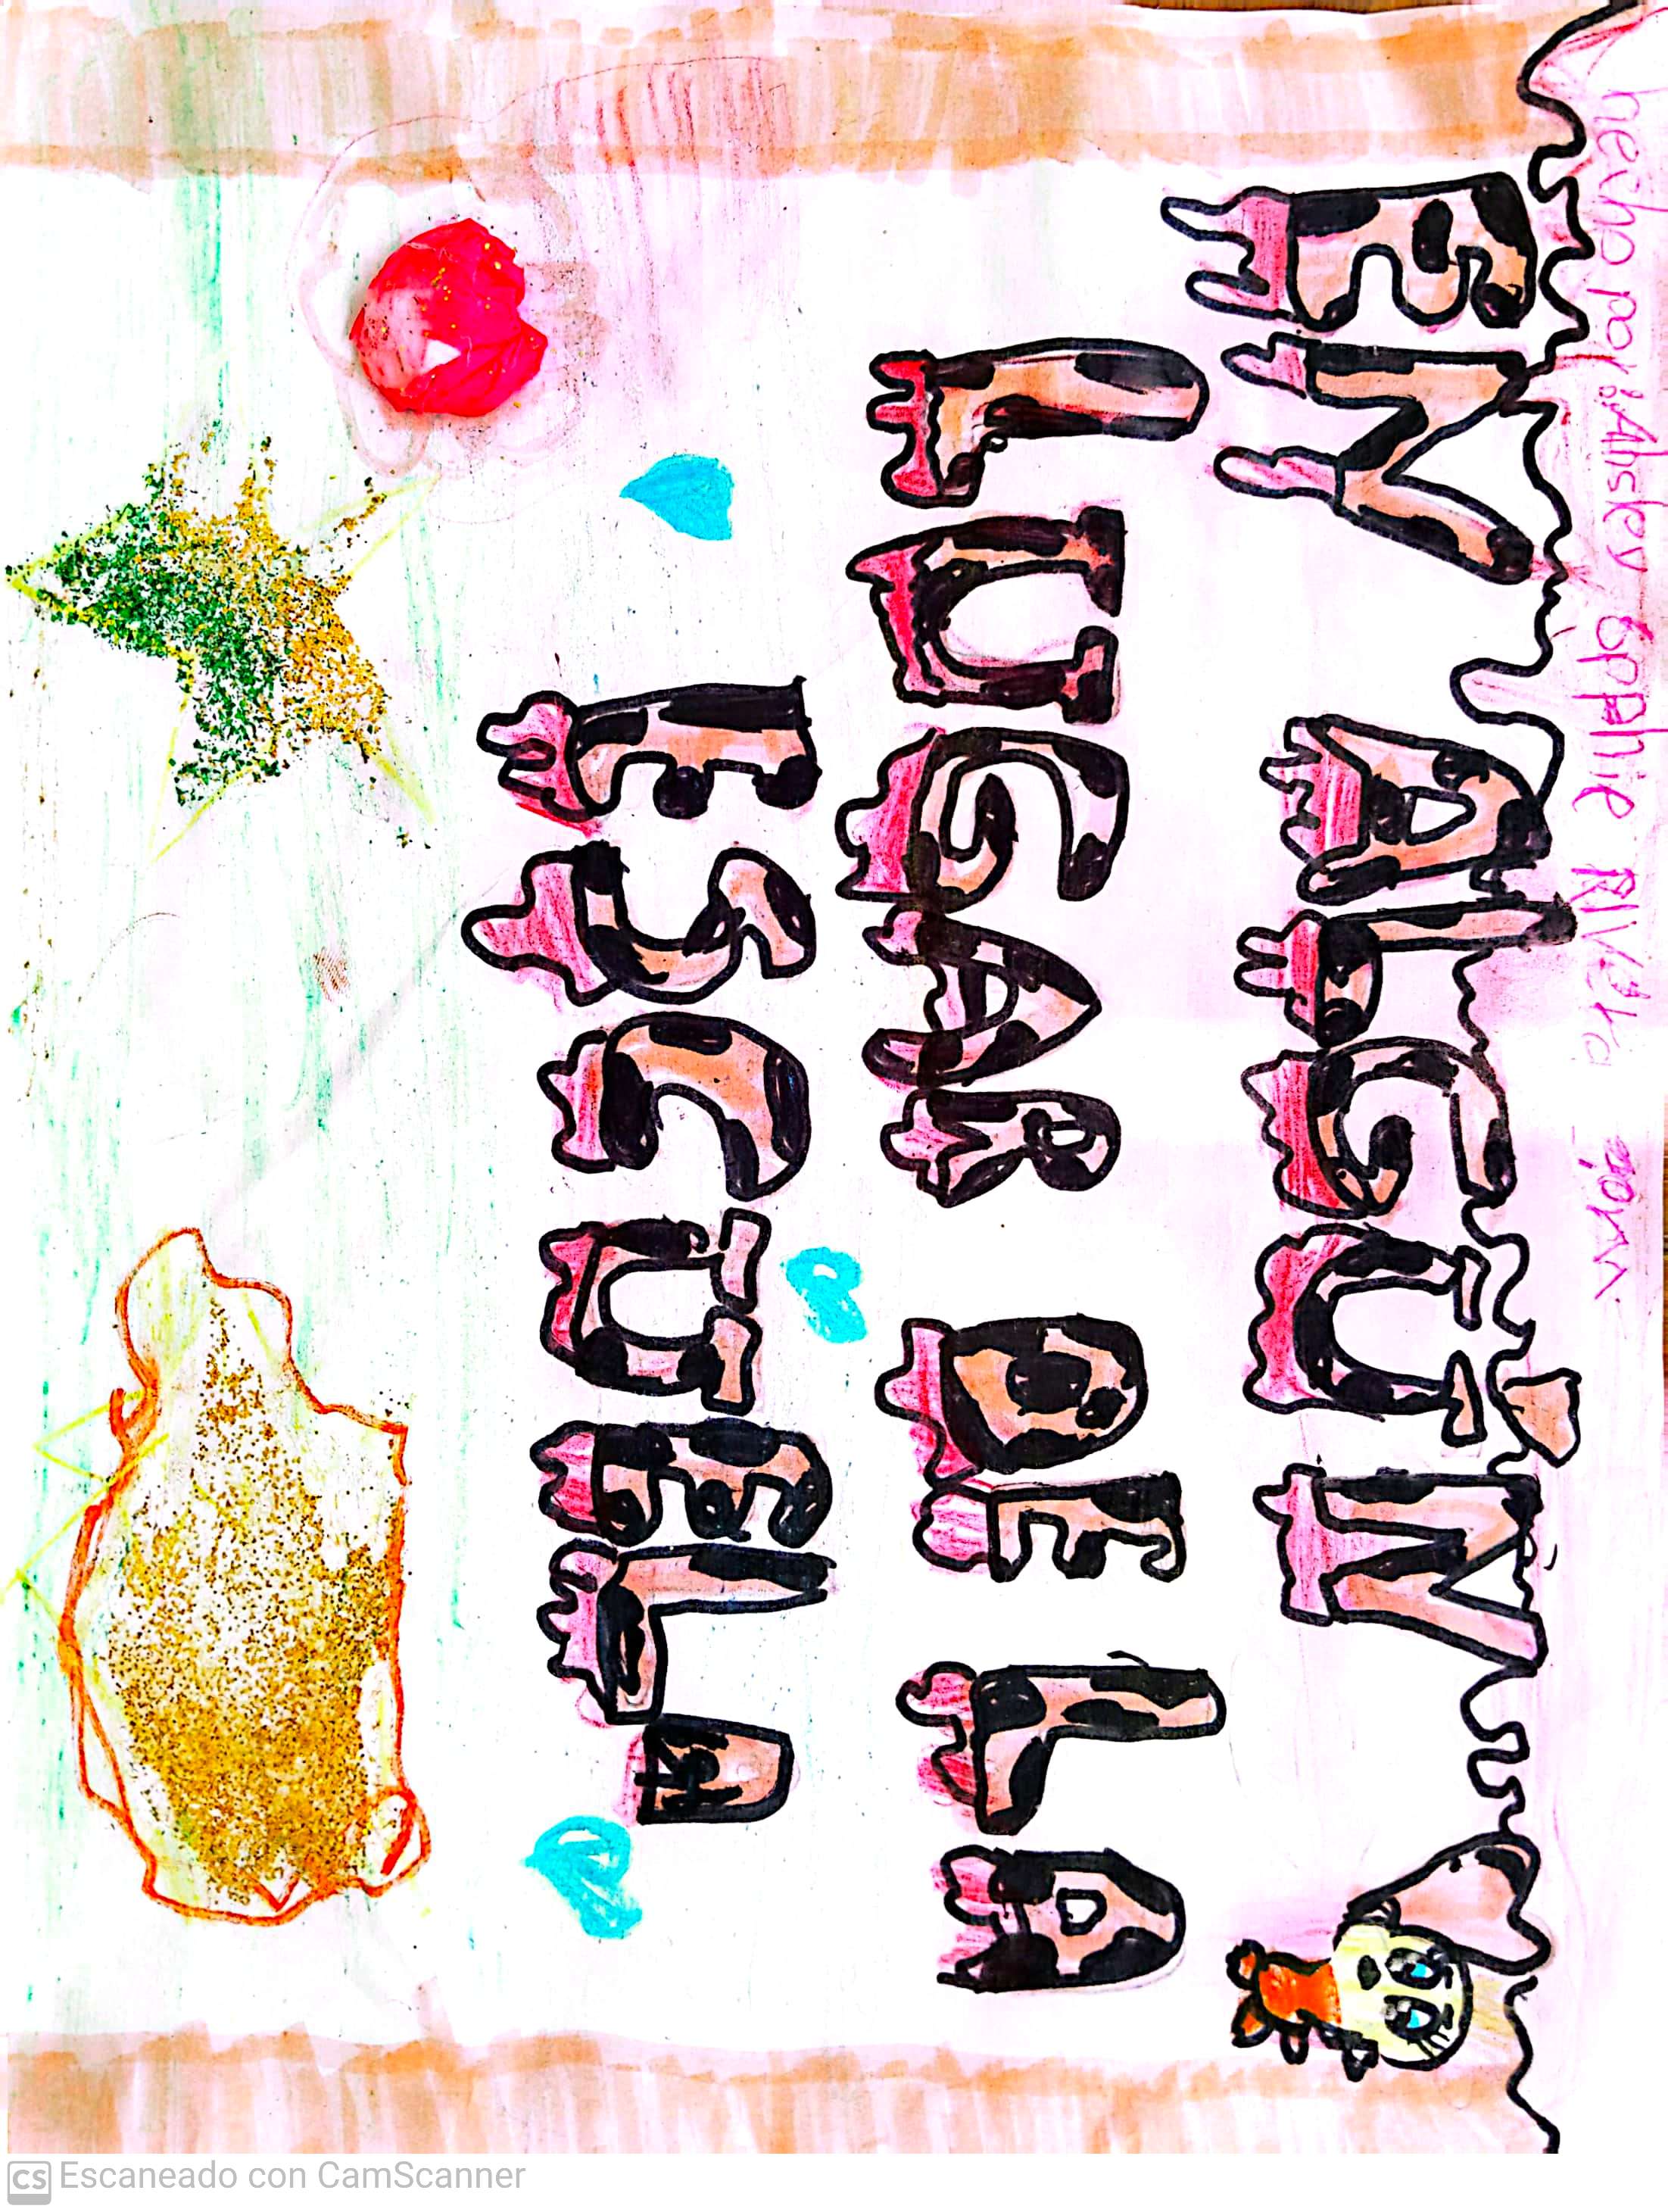 hecho por: Ahsley Sophie RIVera
EN ALGÚN
LUGAR DE LA
ESCUELA
CS Escaneado con CamScanner